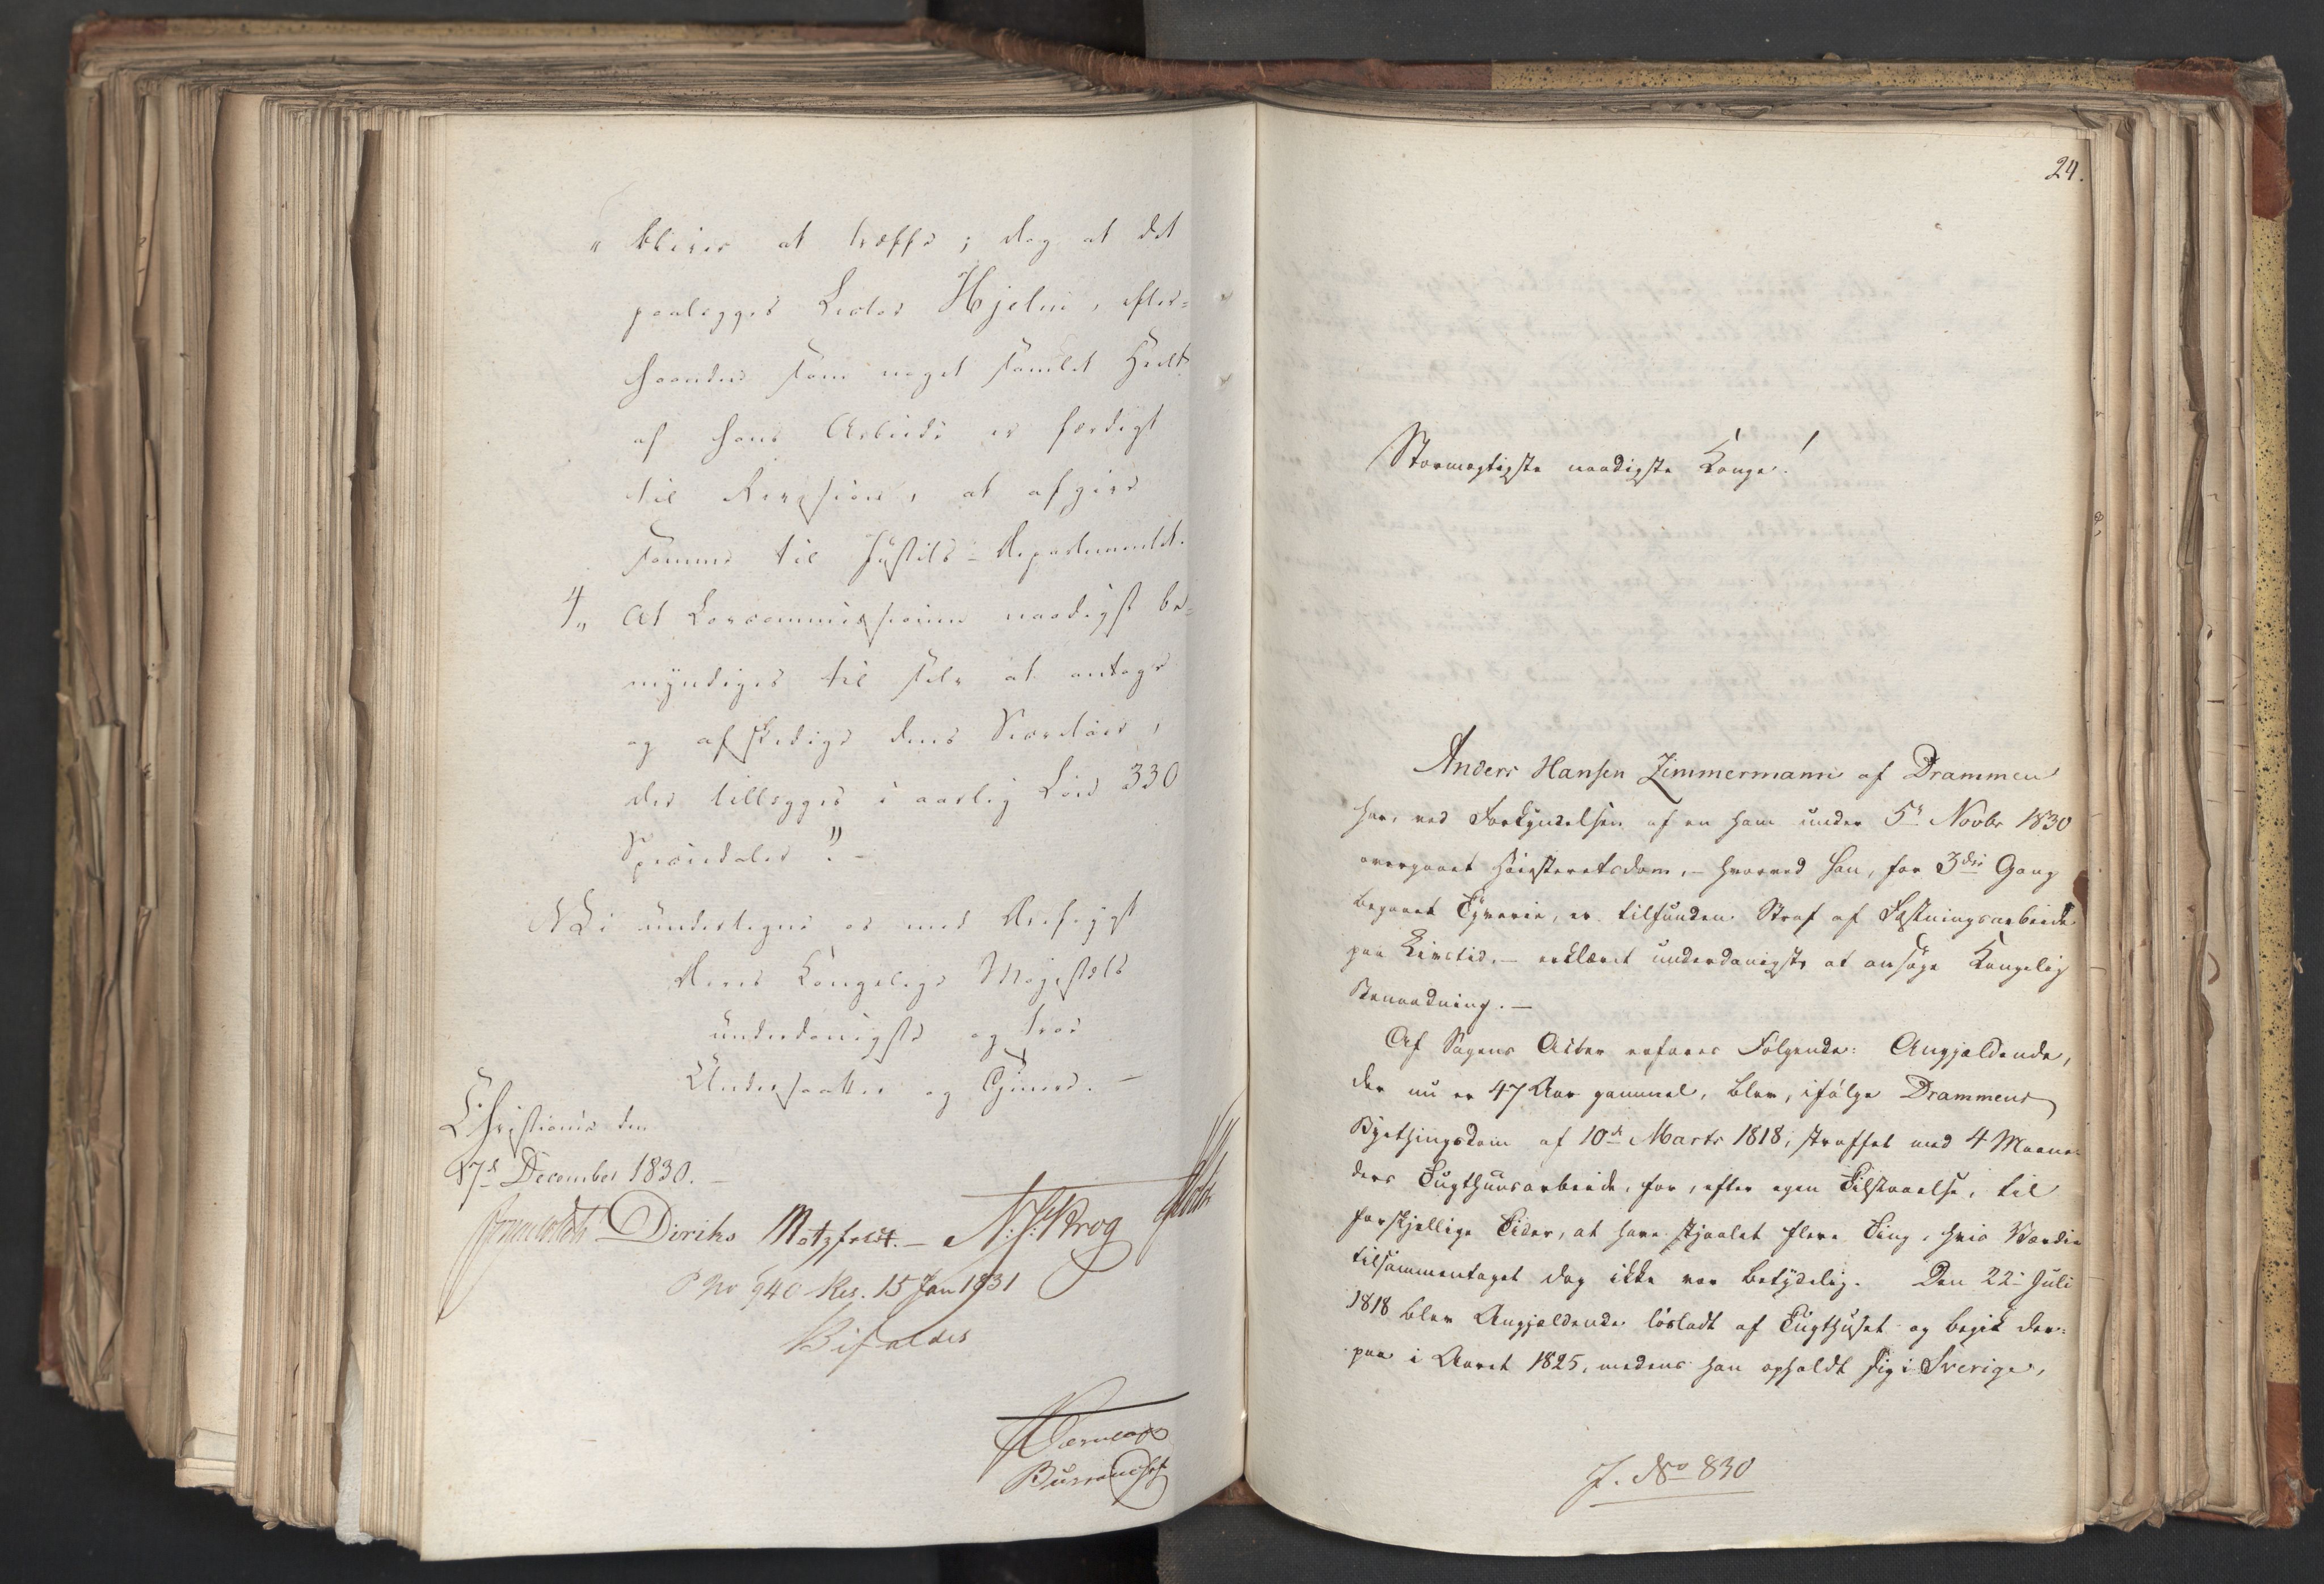 " bliver at træffe; dog at det
paalægges Lector Hjelm, efter=
haanden som noget samlet Heelt
af hans Arbeide er færdigt
til Revision, at afgive
samme til Justits-Departementet.
4, At Lovcommissionen naadigst be=
myndiges til selv at antage
og afskedige dens Secretair,
der tillægges i aarlig Løn 330
Speciedaler". -
Vi undertegne os med Ærefrygt
Deres Kongelige Majestæts
underdanigste og troe
Undersaatter og Tjenere. -
Christiania den
17d December 1830. -
Diriks Motzfeldt. - N. J. Krog
P No 940 Res. 15 Jan 1831
Bifaldes
24.
Stormægtigste naadigste Konge!
Anders Hansen Zimmermann af Drammen
har, ved Forkyndelsen af en ham under 5d Novbr 1830
overgaaet Høiesteretsdom, - hvorved han, for 3die Gang
begaaet Tyverie, er tilfunden Straf af Fæstningsarbeide
paa Livstid, - erklæret underdanigst at ansøge Kongelig
Benaadning. -
Af Sagens Acter erfares Følgende: Angjældende,
der nu er 47 Aar gammel, blev, ifølge Drammens
Byethingsdom af 10de Marts 1818, straffet med 4 Maane-
ders Tugthuusarbeide, for, efter egen Tilstaaelse, til
forskjellige Tider, at have stjaalet flere Ting, hvis Værdie
tilsammentaget dog ikke var betydelig. Den 22 Juli
1818 blev Angjældende løsladt af Tugthuset og begik der=
paa i Aaret 1825, medens han opholdt sig i Sverige,
J. No 830